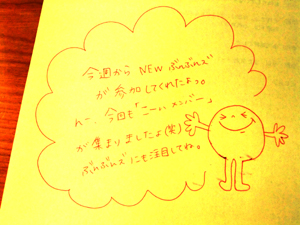 今週から NEW ぶんぶんズ
が参加してくれたよっ。
ん〜、今回も「こーい メンバー」
が集まりましたよ(笑)
ぶんぶんズにも注目してね。